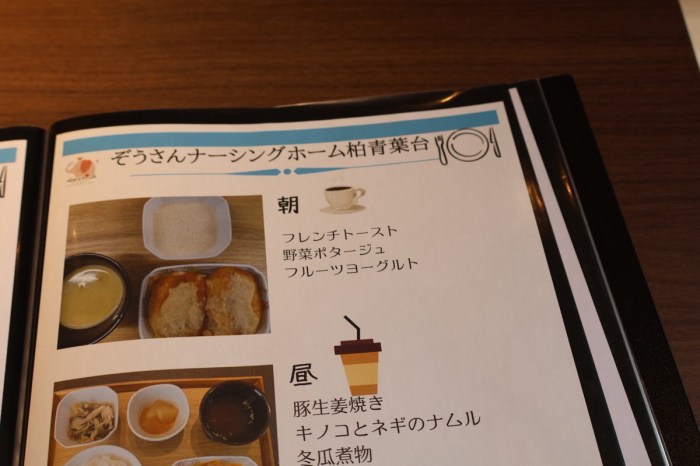 ぞうさんナーシングホーム柏青葉台
朝
フレンチトースト
野菜ポタージュ
フルーツヨーグルト
昼
豚生姜焼き
キノコとネギのナムル
冬瓜煮物